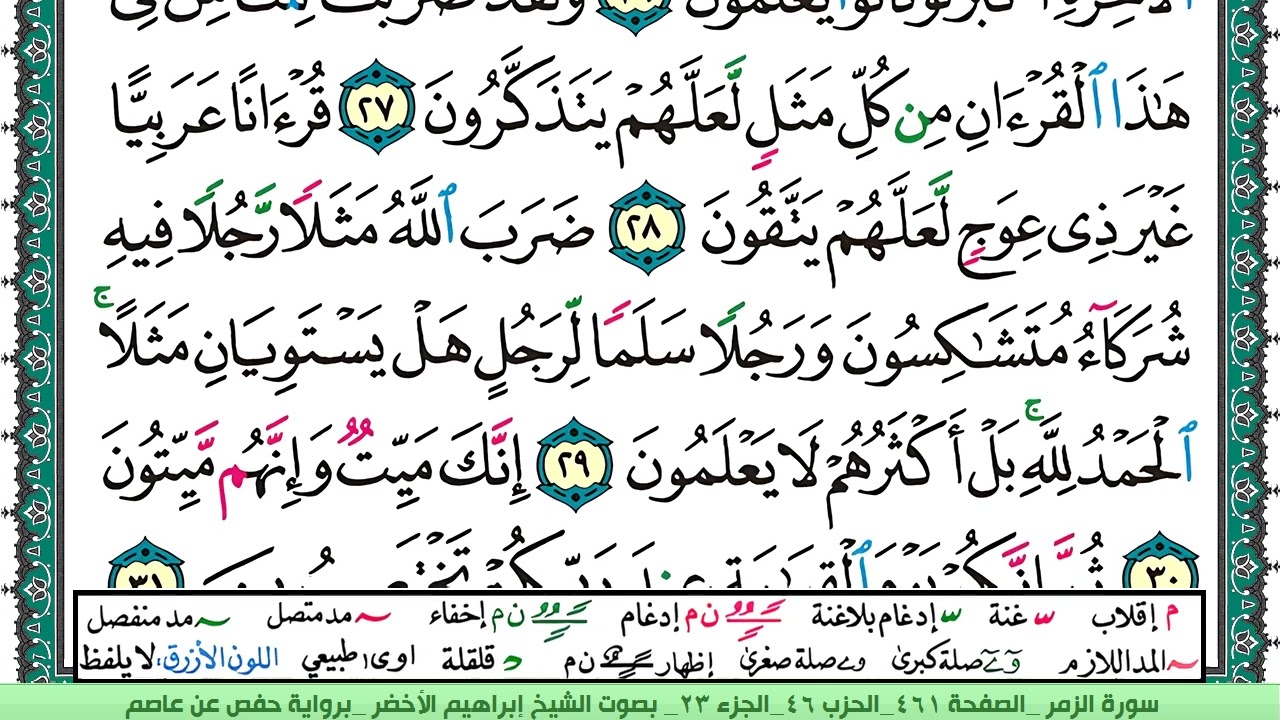 ٱلْـَٔاخِرَةِ أَكْبَرُ لَوْ كَانُوا۟ يَعْلَمُونَ ٢٦ وَلَقَدْ ضَرَبْنَا لِلنَّاسِ فِى
هَٰذَا ٱلْقُرْءَانِ مِن كُلِّ مَثَلٍ لَّعَلَّهُمْ يَتَذَكَّرُونَ ٢٧ قُرْءَانًا عَرَبِيًّا
غَيْرَ ذِى عِوَجٍ لَّعَلَّهُمْ يَتَّقُونَ ٢٨ ضَرَبَ ٱللَّهُ مَثَلًا رَّجُلًا فِيهِ
شُرَكَآءُ مُتَشَٰكِسُونَ وَرَجُلًا سَلَمًا لِّرَجُلٍ هَلْ يَسْتَوِيَانِ مَثَلًا ۚ
ٱلْحَمْدُ لِلَّهِ ۚ بَلْ أَكْثَرُهُمْ لَا يَعْلَمُونَ ٢٩ إِنَّكَ مَيِّتٌ وَإِنَّهُم مَّيِّتُونَ
٣٠ ثُمَّ إِنَّكُمْ يَوْمَ ٱلْقِيَٰمَةِ عِندَ رَبِّكُمْ تَخْتَصِمُونَ ٣١
م إقلاب ـّ غنة ـّ إدغام بلاغنة ن م إدغام ن م إخفاء ~ مد متصل ~ مد منفصل
~ المد اللازم وٓ ےٓ صلة كبرى و ے صلة صغرى إظهار ن م د قلقلة ا و ى طبيعي اللون الأزرق: لا يلفظ
سورة الزمر _الصفحة ٤٦١_الحزب ٤٦_الجزء ٢٣_ بصوت الشيخ إبراهيم الأخضر _برواية حفص عن عاصم